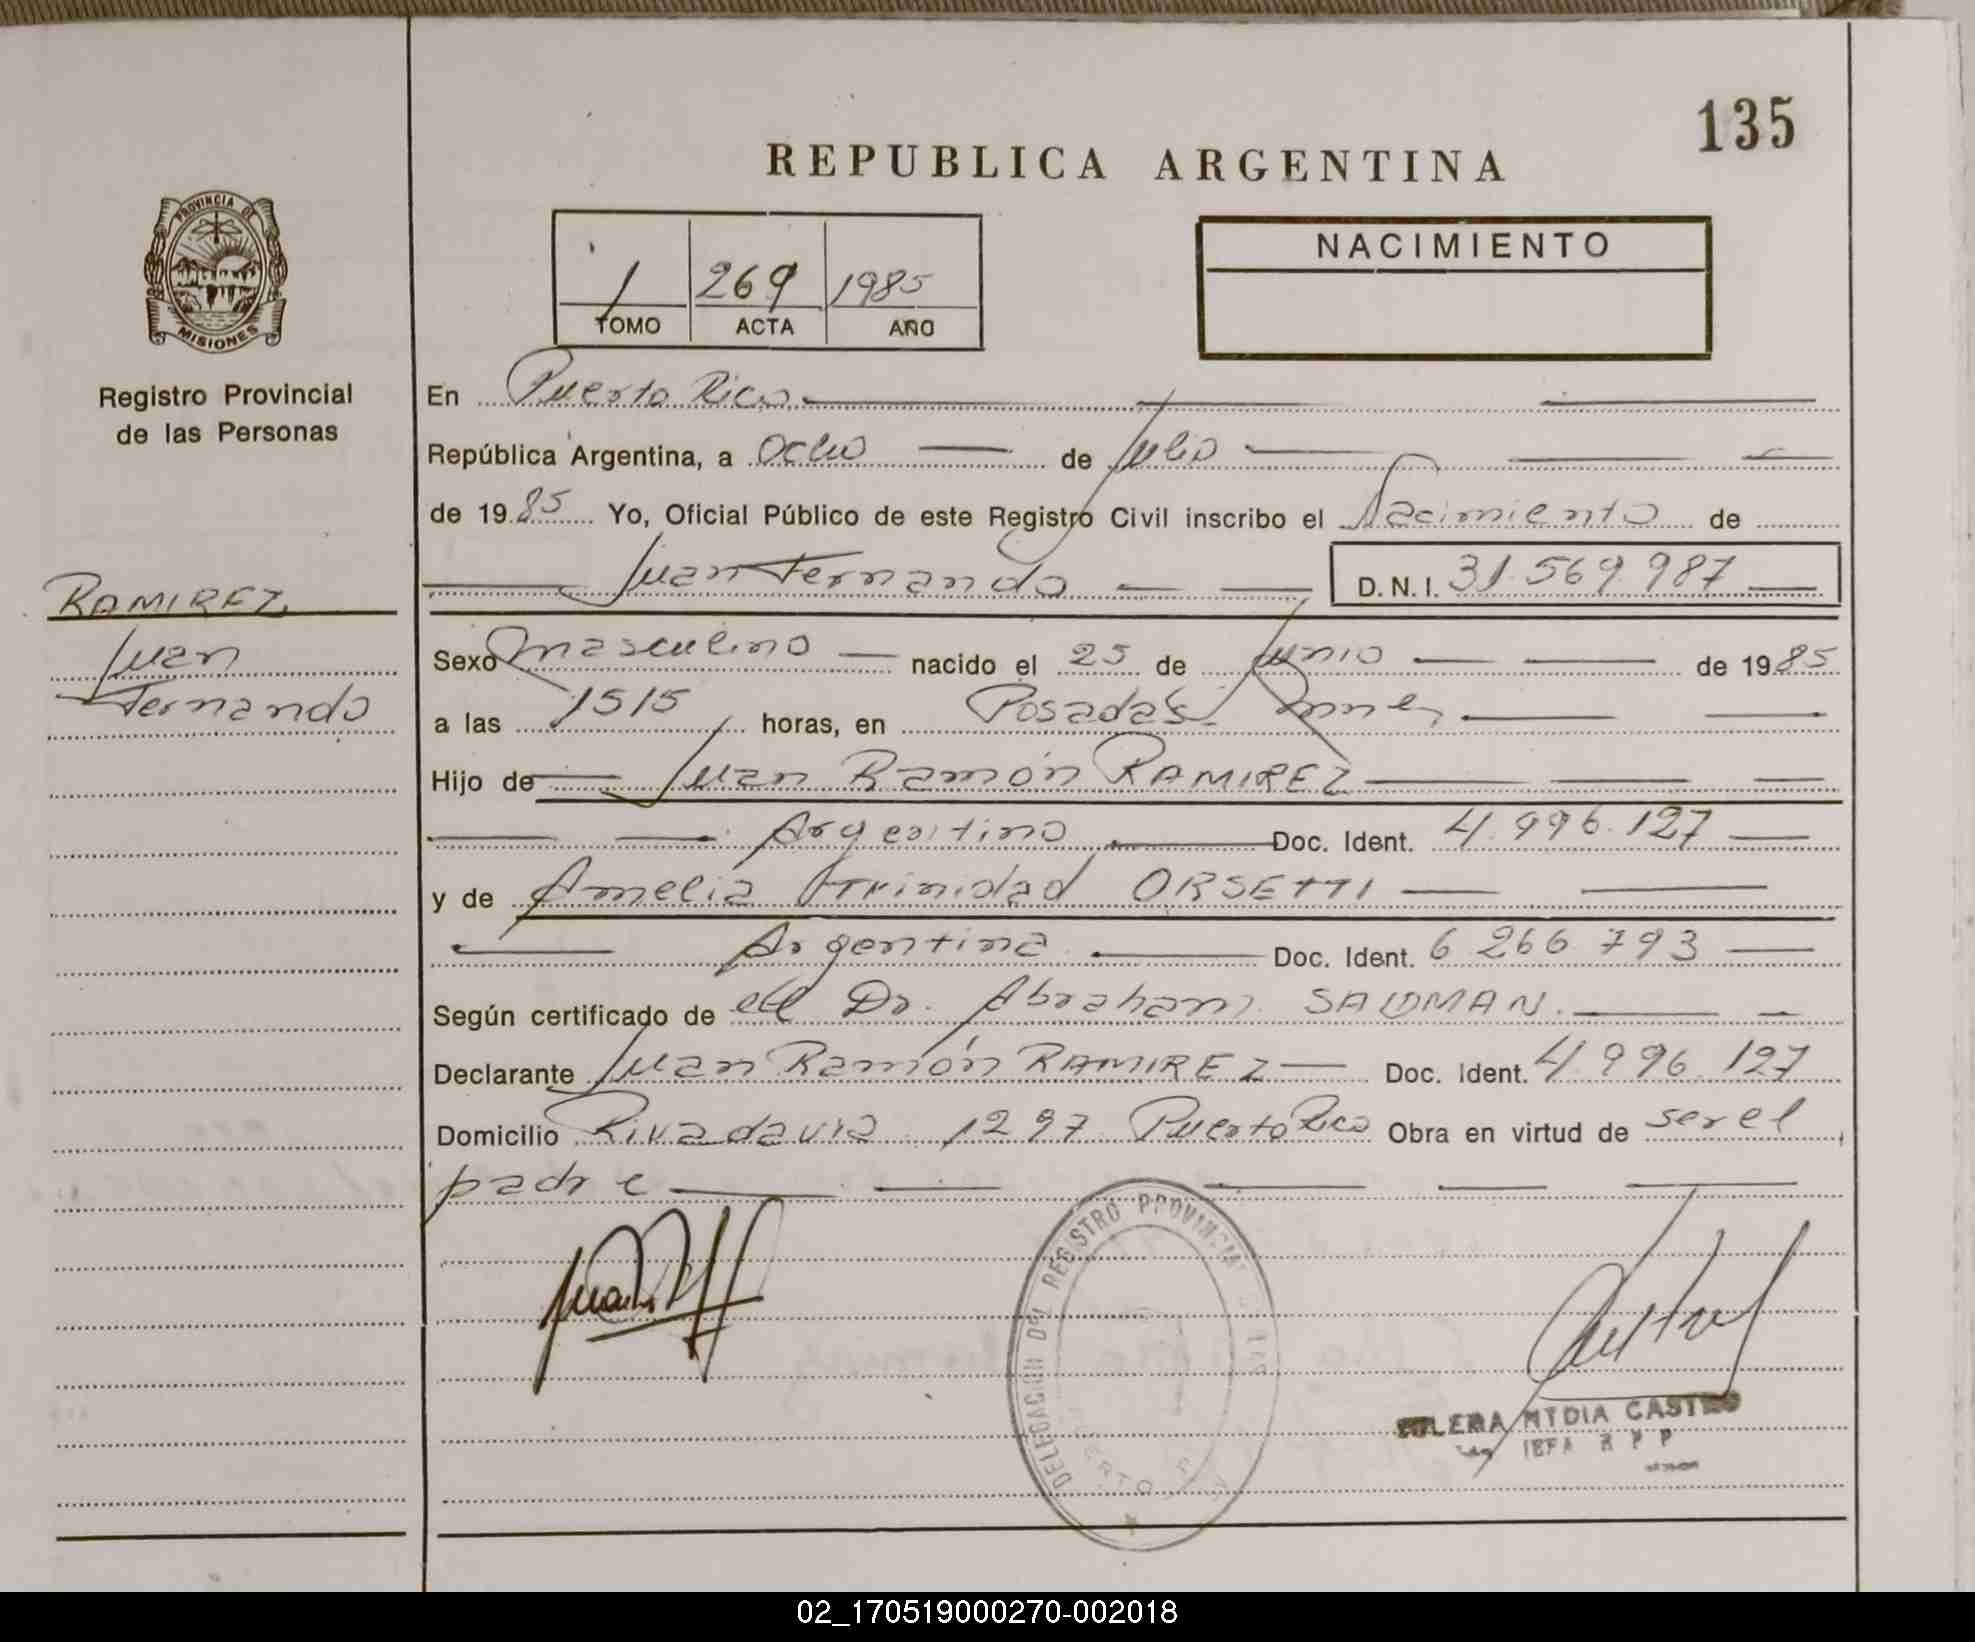 135
REPUBLICA ARGENTINA
PROVINCIA DE
MISIONES
1 269 1985
TOMO ACTA AÑO
NACIMIENTO
Registro Provincial
de las Personas
RAMIREZ
Juan
Fernando
En Puerto Rico
República Argentina, a Ocho de Julio
de 1985 Yo, Oficial Público de este Registro Civil inscribo el Nacimiento de
Juan Fernando D.N.I. 31.569.987
Sexo masculino nacido el 25 de Junio de 1985
a las 1515 horas, en Posadas
Hijo de Juan Ramón RAMIREZ
Argentino Doc. Ident. 4.996.127
y de Amelia Trinidad ORSETTI
Argentina Doc. Ident. 6 266 793
Según certificado de el Dr. Abraham
Declarante Juan Ramón RAMIREZ Doc. Ident. 4.996.127
Domicilio Rivadavia 1297 Puerto Rico Obra en virtud de ser el
padre
DELEGACION DEL REGISTRO PROVINCIAL
CASTRO
02_170519000270-002018